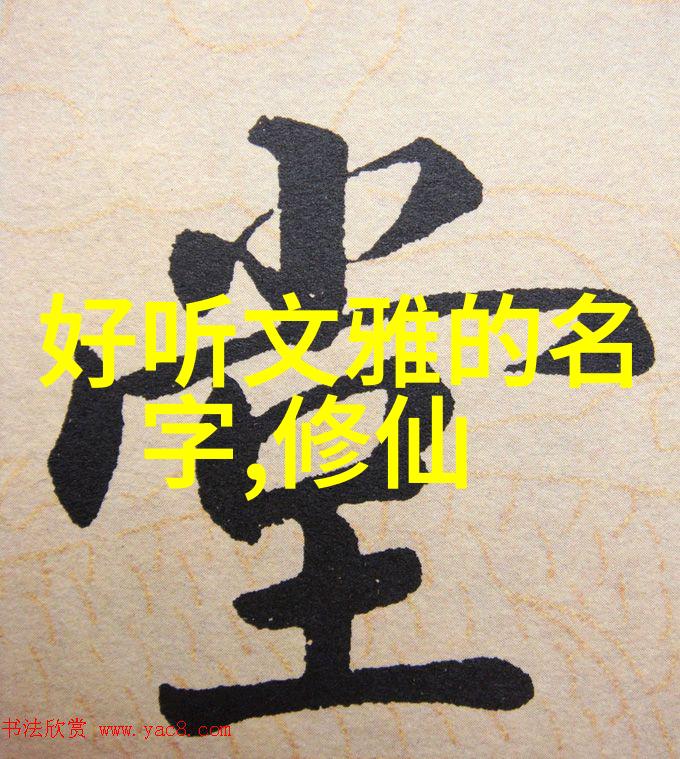 堂
好听文雅的名
字,修仙
书法欣赏 www.yac8.com